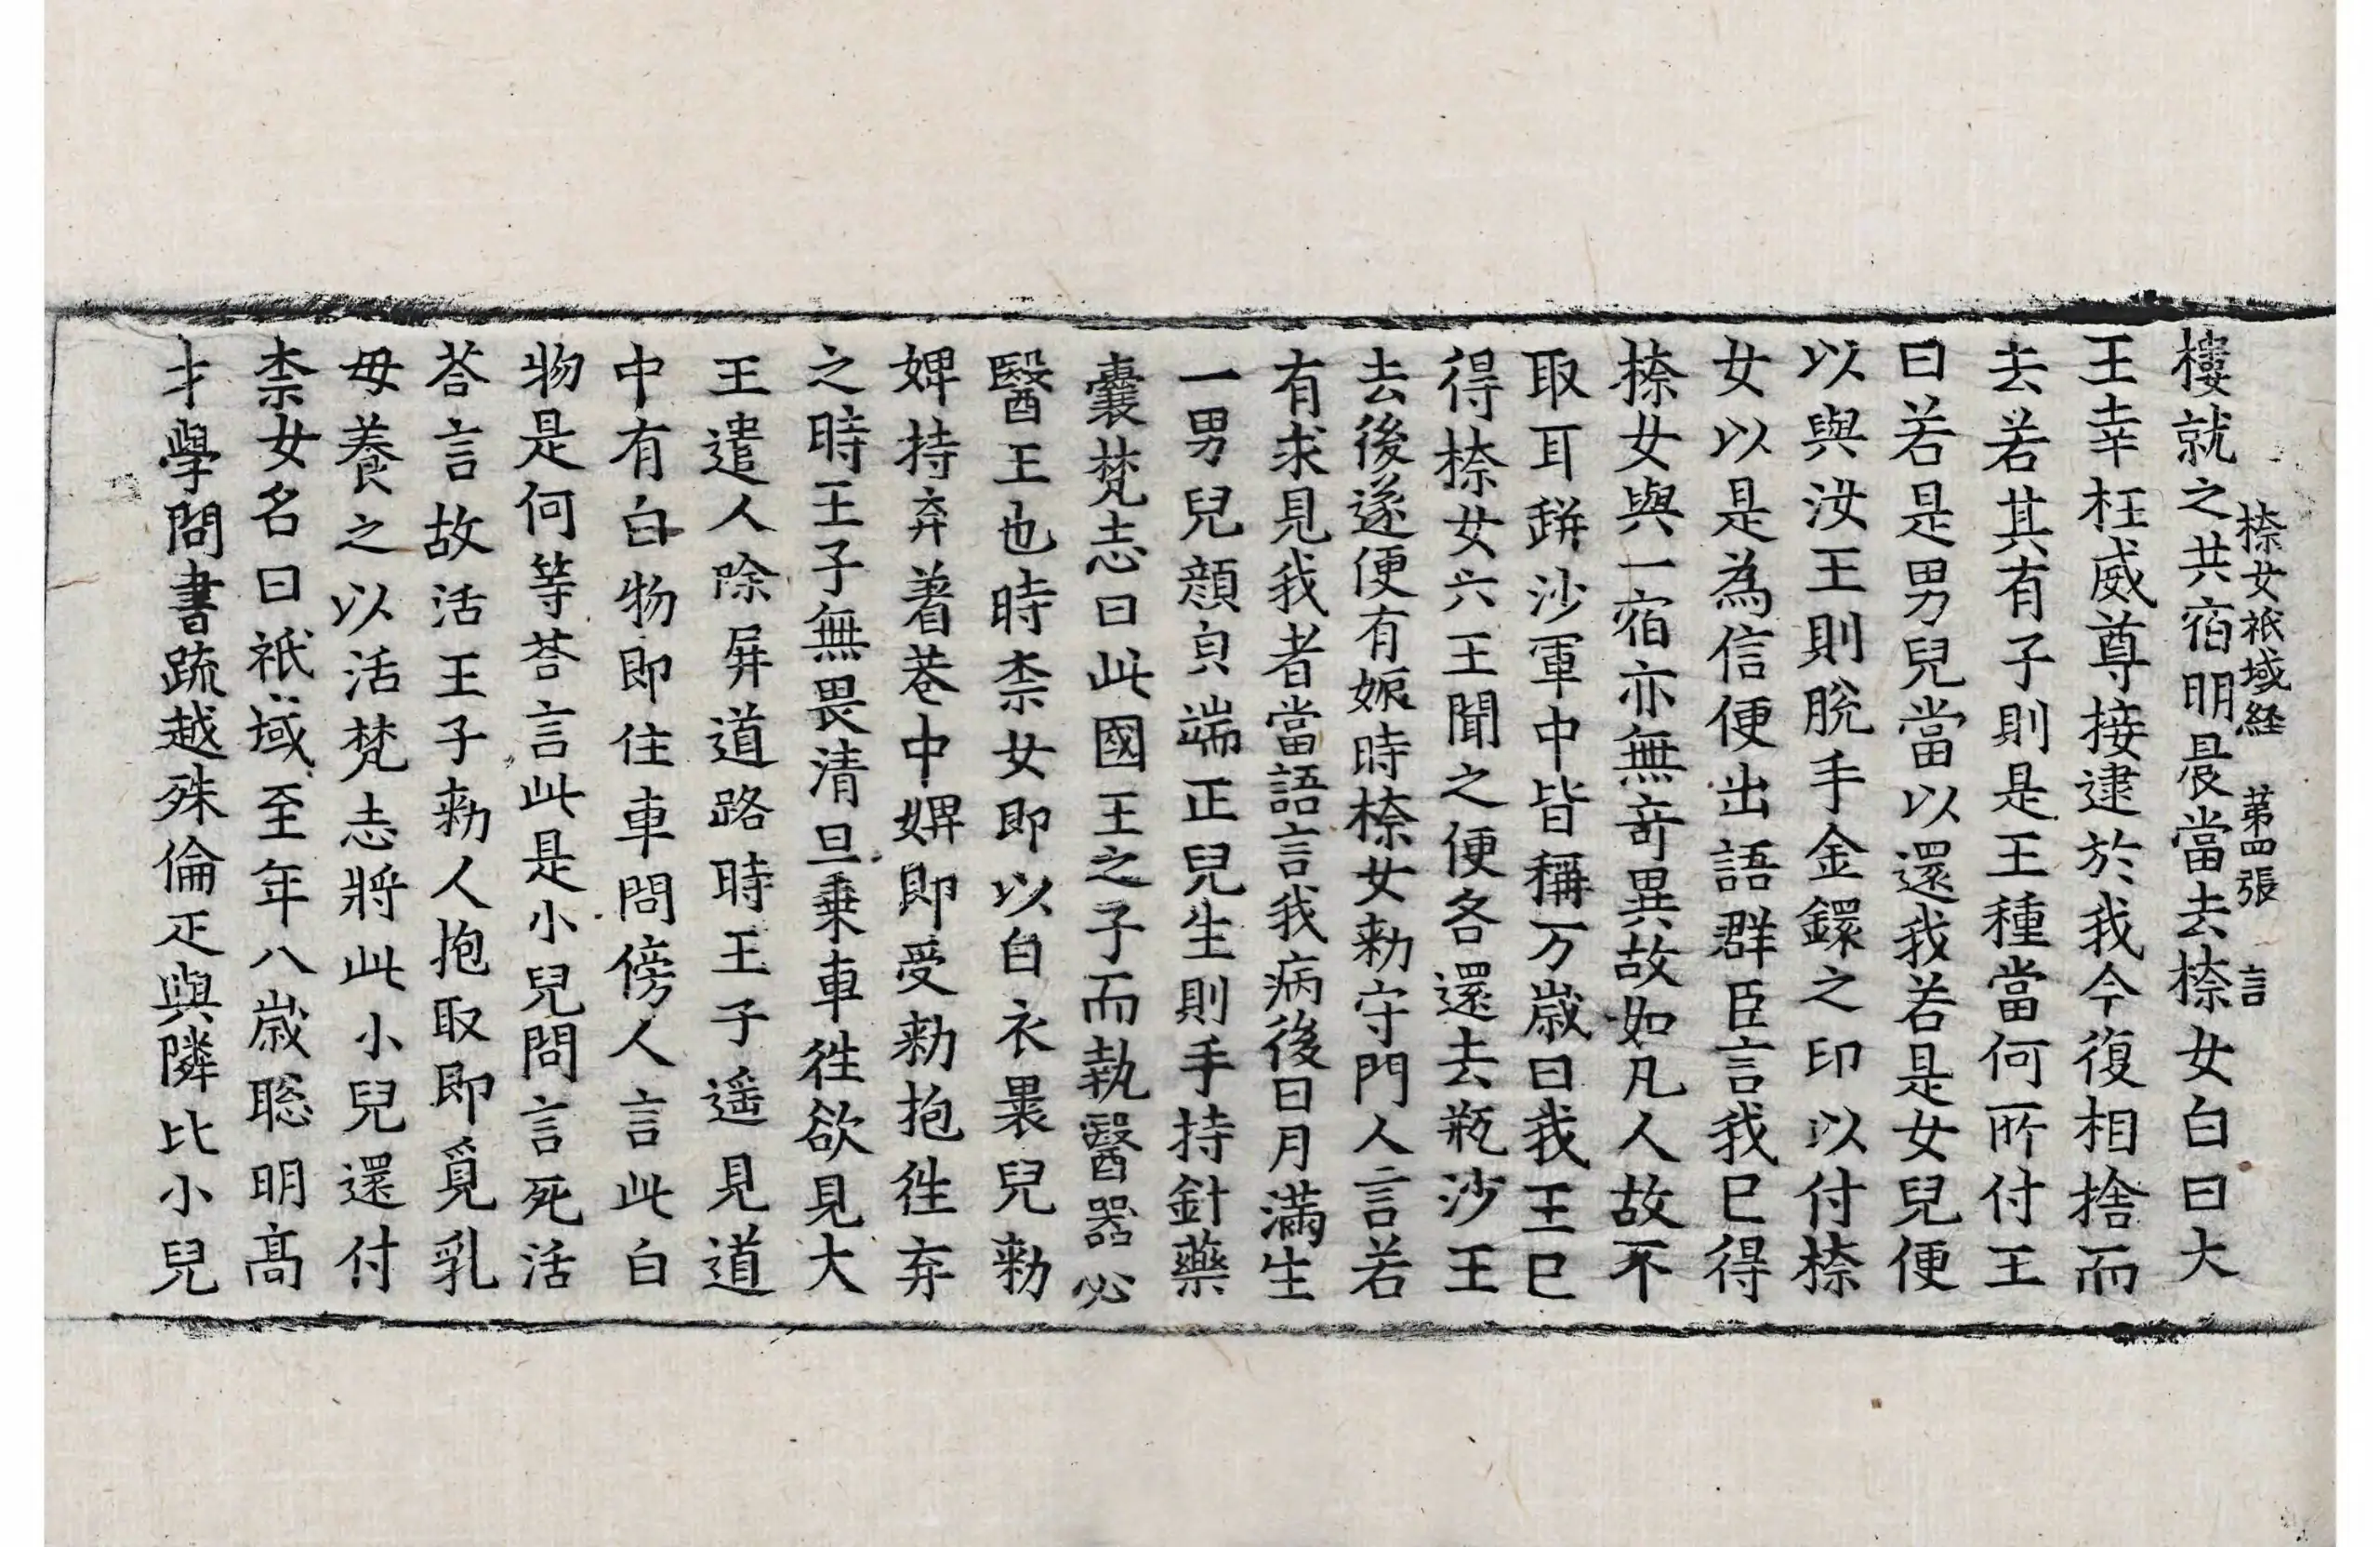 㮈女祇域経　第四張　言
樓就之共宿明晨當去㮈女白曰大
王幸枉威尊接逮於我今復相捨而
去若其有子則是王種當何所付王
曰若是男兒當以還我若是女兒便
以與汝王則脫手金鐶之印以付㮈
女以是為信便出語群臣言我已得
㮈女與一宿亦無竒異故如凡人故不
取耳缾沙軍中皆稱万歲曰我王已
得㮈女六王聞之便各還去瓶沙王
去後遂便有娠時㮈女勑守門人言若
有求見我者當語言我病後日月滿生
一男兒顔㒵端正兒生則手持針藥
囊梵志曰此國王之子而執醫器必
醫王也時柰女即以白衣裹兒勑
婢持弃着巷中婢即受勑抱徃弃
之時王子無畏清旦乗車徃欲見大
王遣人除屏道路時王子遥見道
中有白物即住車問傍人言此白
物是何等荅言此是小兒問言死活
荅言故活王子勑人抱取即覓乳
母養之以活梵志將此小兒還付
柰女名曰祇域至年八歲聡明髙
才學問書疏越殊倫疋與隣比小兒